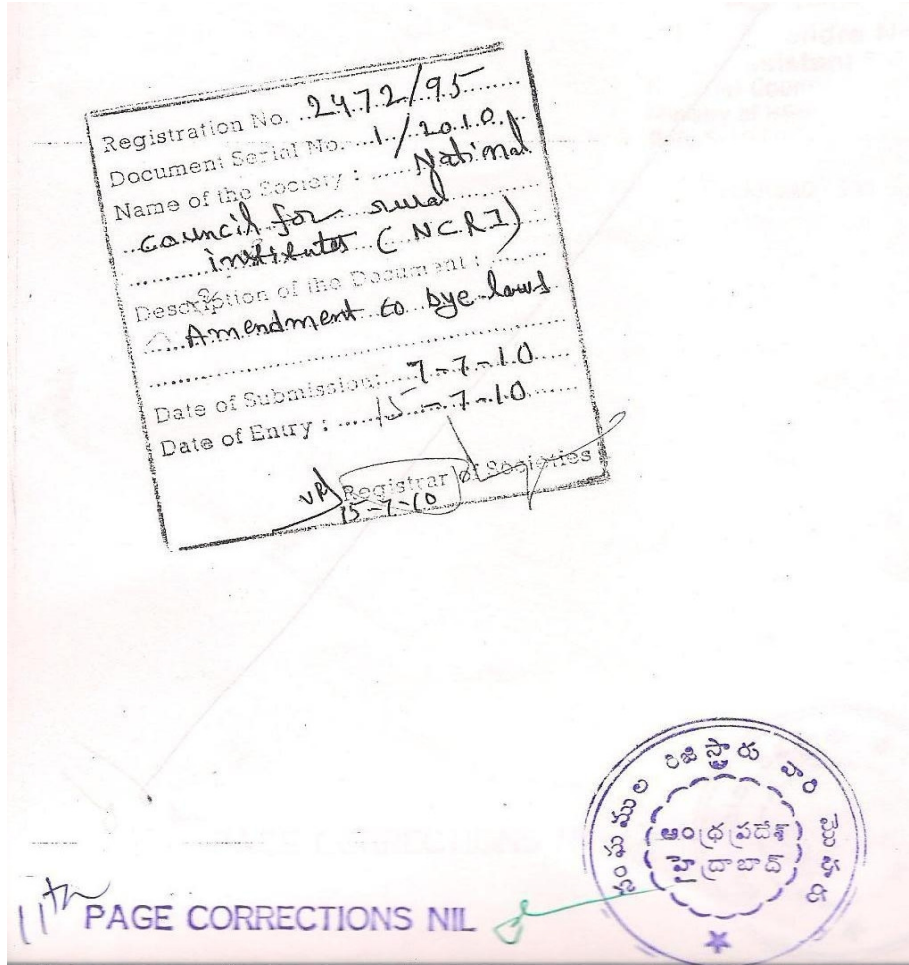 Registration No. 2472/95
Document Serial No. 1/2010
Name of the Society : National
Council for rural
institutes (NCRI)
Description of the Document :
Amendment to bye-laws
Date of Submission: 7-7-10
Date of Entry : 15-7-10
Registrar of Societies
15-7-10
సంఘముల రిజిస్ట్రారు వారి మొహరు
ఆంధ్ర ప్రదేశ్
హైద్రాబాద్
11th PAGE CORRECTIONS NIL